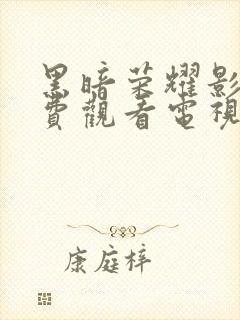 黑暗荣耀影
費觀看電視
康庭梓